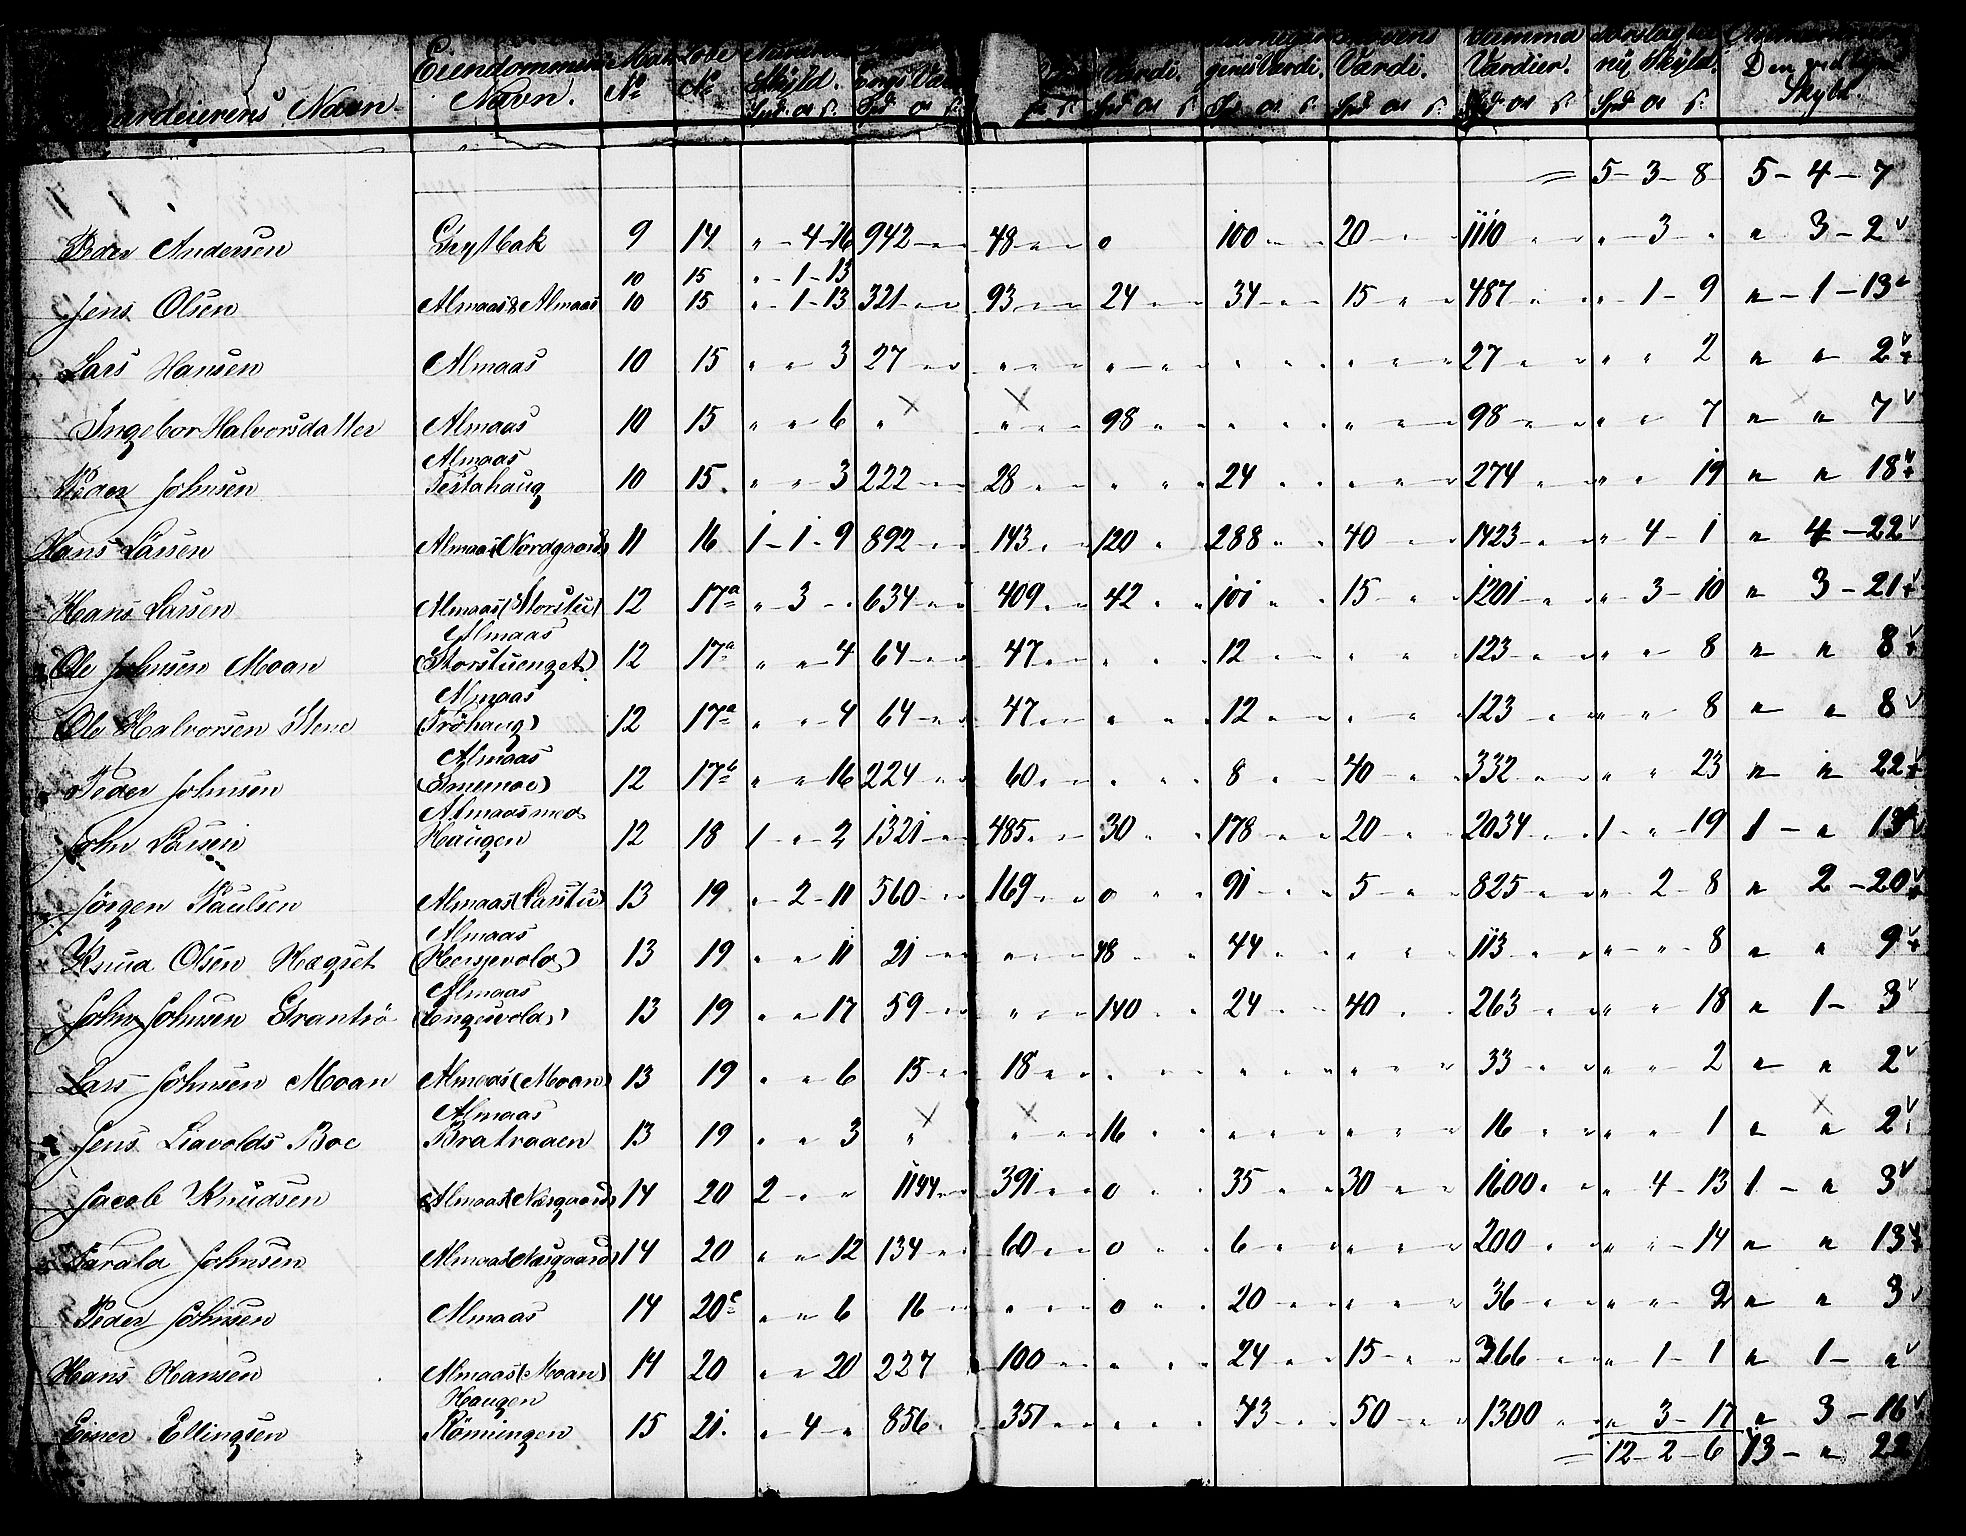 Eiendommens Matr Lobe
Gaardeierens Navn. Navn. No No Skyld. Værdi. Værdi. Værdier. ny Skyld. Den Skyld.
= 5-3-8 5-4-7
Peder Andersen 9 14 " -4-16 942 48 0 100 20 1110 " 3 " " 3-2
10 15 " -1-13
Jens Olsen Almaas & Almaas 10 15 " -1-13 321 93 24 34 15 487 " 1-9 " -1-13
Lars Hansen Almaas 10 15 " " 3 27 " " " " 27 " " 2 " " 2
Ingebor Halvorsdatter Almaas 10 15 " " 6 " " 98 " " 98 " " 7 " " 7
Almaas
Peder Johnsen Testahaug 10 15. " " 3 222 28 " 24 " 274 " " 19 " " 18
Hans Larsen Almaas (Nordgaard) 11 16 1-1-9 892 143 120 288 40 1423 " 4-1 " 4-22
Hans Larsen Almaas (Storstu) 12 17a " 3 " 634 409 42 101 15 1201 " 3-10 " 3-21
Almaas
Ole Johnsen Moan (Storstuenget) 12 17a " " 4 64 47 " 12 " 123 " " 8 " " 8
Almaas
Ole Halvorsen Stene Tröhaug) 12 17a " " 4 64 47 " 12 " 123 " " 8 " " 8
Almaas
Peder Johnsen 12 17b " " 16 224 60 " 8 40 332 " " 23 " " 22
Almaas med
John Larsen Haugen 12 18 1 " 2 1321 485 30 178 20 2034 1 " 19 1 - "
Jörgen Paulsen Almaas (Larstu) 13 19 " 2-11 560 169 0 91 5 825 " 2-8 " 2-20
Almaas
Knud Olsen Hegset 13 19 " " 11 21 " 48 44 " 113 " " 8 " " 9
Almaas
John Johnsen Grantrö (Engesvold) 13 19 " " 17 59 " 140 24 40 263 " " 18 " 1-3
Lars Johnsen Moan Almaas (Moan) 13 19 " " 6 15 18 " " " 33 " " 2 " " 2
Almaas
Jens Liavolds Boe Bratraaen 13 19 " " 3 " " 16 " " 16 " " 1 " " 2
Jacob Knudsen Almaas (Nesgaard) 14 20 2 " " 1144 391 0 35 30 1600 " 4-13 1 - " 3
Johnsen Almaas (Nesgaard) 14 20 " " 12 134 60 0 6 " 200 " " 14 " " 13
Peder Johnsen Almaas 14 20c " " 6 16 " 0 20 " 36 " " 2 " " 3
Hans Hansen Almaas (Moan) 14 20 " " 20 227 100 " 24 15 366 " 1-1 " 1- "
Haugen
Einer Ellingsen Rönningen 15 21. " 4 " 856 351 " 43 50 1300 " 3-17 " 3-16
= 12-2-6 13- " 22